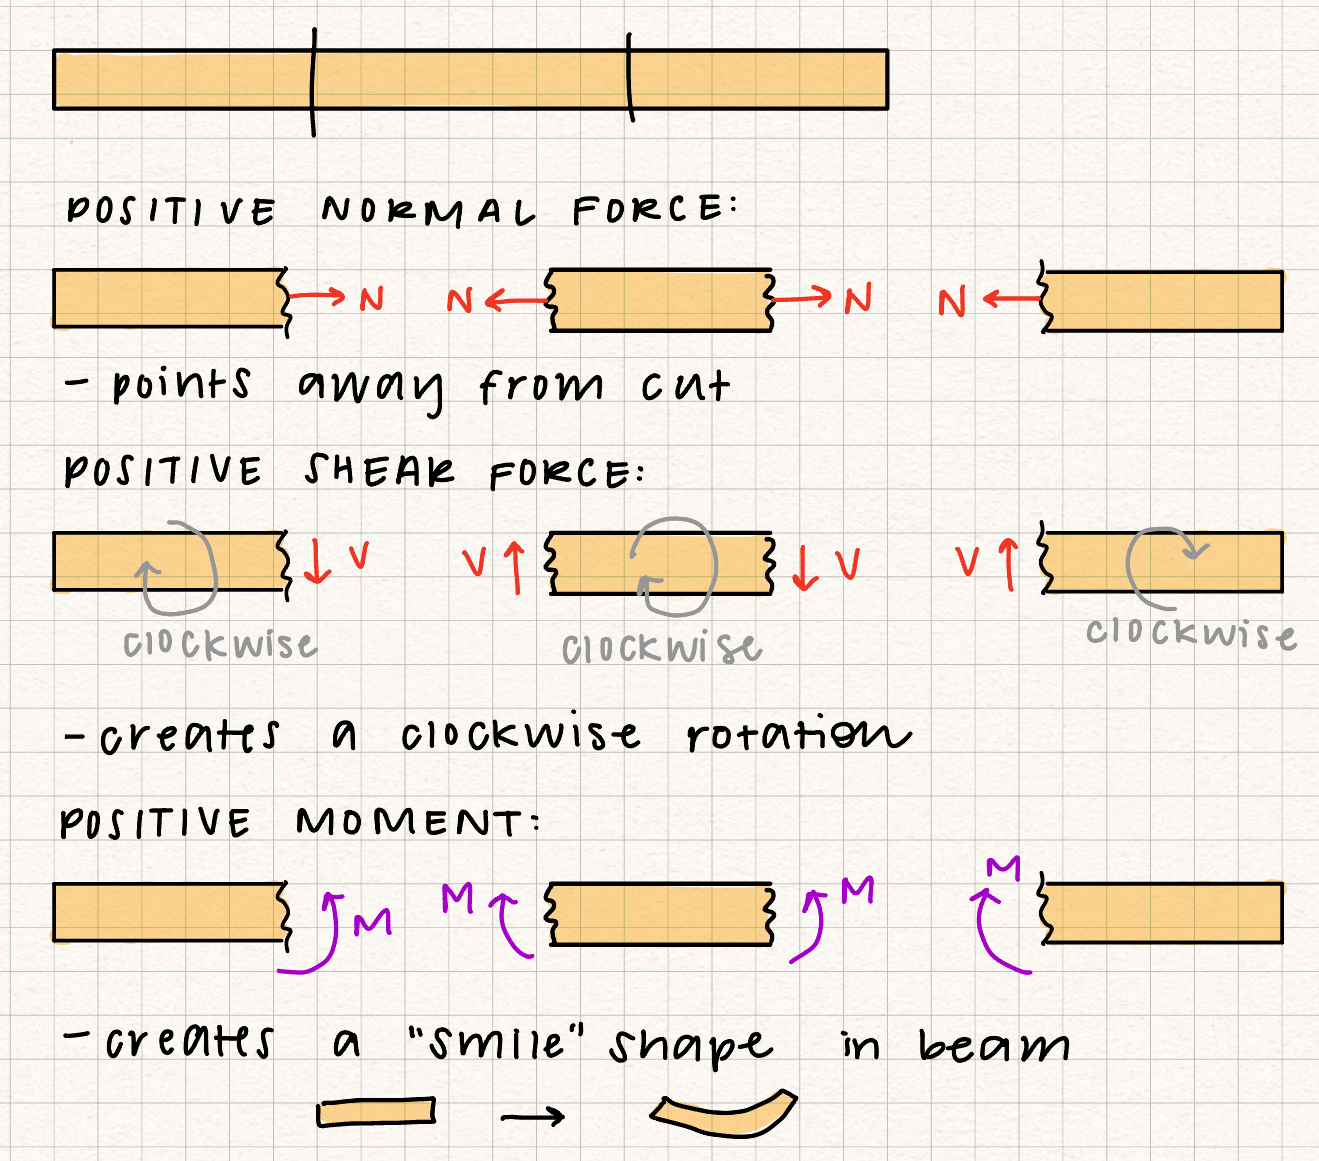 POSITIVE NORMAL FORCE:
N N N N
- points away from cut
POSITIVE SHEAR FORCE:
V V V V
clockwise clockwise clockwise
- creates a clockwise rotation
POSITIVE MOMENT:
M M M M
- creates a "smile" shape in beam